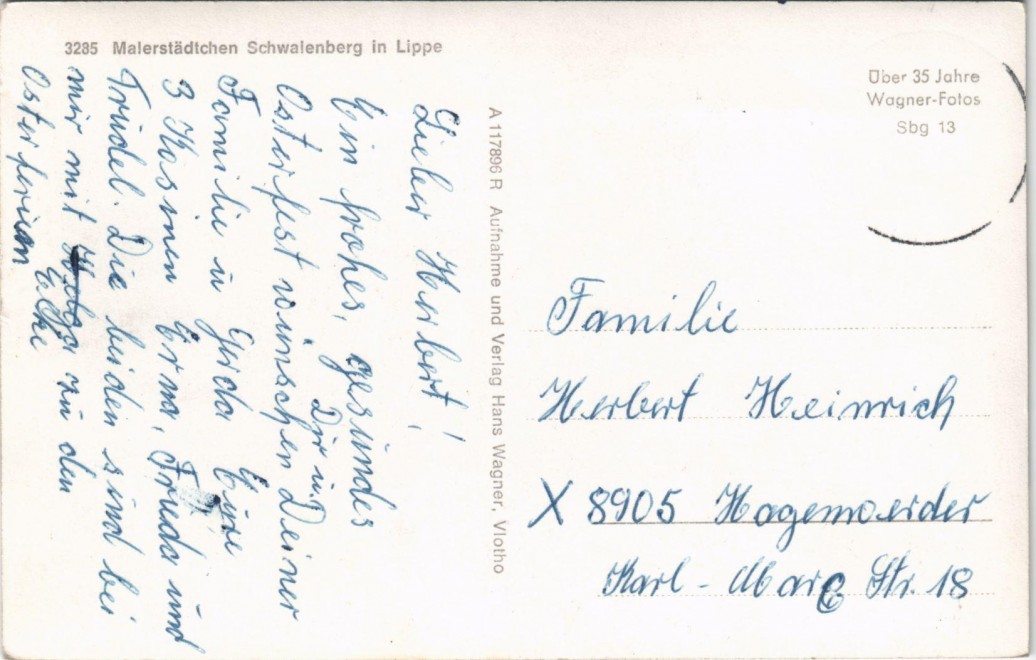 3285 Malerstädtchen Schwalenberg in Lippe
Über 35 Jahre
Wagner-Fotos
Sbg 13
Lieber Herbert!
Ein frohes, gesundes
Osterfest wünschen Dir u. Deiner
Familie u Gerda Eure
3 Kosinen Erna, Frieda und
Trudel. Die beiden sind bei
mir mit Helga zu den
Osterferien
Elke
A 117896 R Aufnahme und Verlag Hans Wagner, Vlotho
Familie
Herbert Heinrich
X 8905 Hagenwerder
Karl-Marx Str. 18